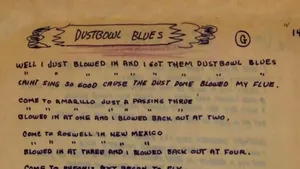 DUSTBOWL BLUES
G
WELL I JUST BLOWED IN AND I GOT THEM DUSTBOWL BLUES
" " " " " " " " " "
CAINT SING SO GOOD CAUSE THE DUST DONE BLOWED MY FLUE.
COME TO AMARILLO JUST A PASSING THRUE
" " " " " "
BLOWED IN AT ONE AND I BLOWED BACK OUT AT TWO,
COME TO ROSWELL IN NEW MEXICO
" " " " "
BLOWED IN AT THREE AND I BLOWED BACK OUT AT FOUR.
COME TO